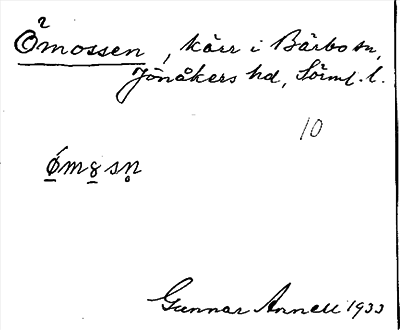 Ömossen, kärr i Bärbo sn,
Jönåkers hd, Sörml. l.
10
ømɷsn̥
Gunnar Annell 1933